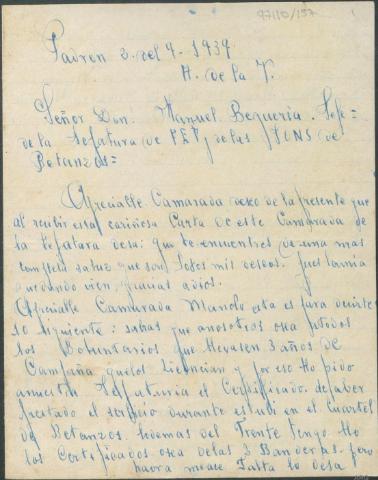 97(10)/137
Padron 2. del 9. 1939
A. de la V.
Señor Don. Manuel Bequeria. Jefe=
de la Jefatura de FET y delas JONS de
Betanzos=
Apreciable Camarada deseo de la presente que
al recibir esta cariñosa Carta de este Camarada de
la Jefatura desa: que te encuentres de una mas
completa salud que son Todos mis deseos. pues lamia
quedando vien gracias adios.
Apreciable Camarada Manolo esta es para decirte
lo siguiente: sabas que anosotros osea todos
los Boluntarios que llevasen 3 años de
Campaña quelos Licencian y por eso Yo pido
anuestra Jefaturia el Certificado. dehaber
prestado el serbicio durante estubi en el Cuartel
de Betanzos. hedemas del Frente Tengo Yo
los Certificados osea delas 3 Banderas. pero
haora meace Falta lo desa